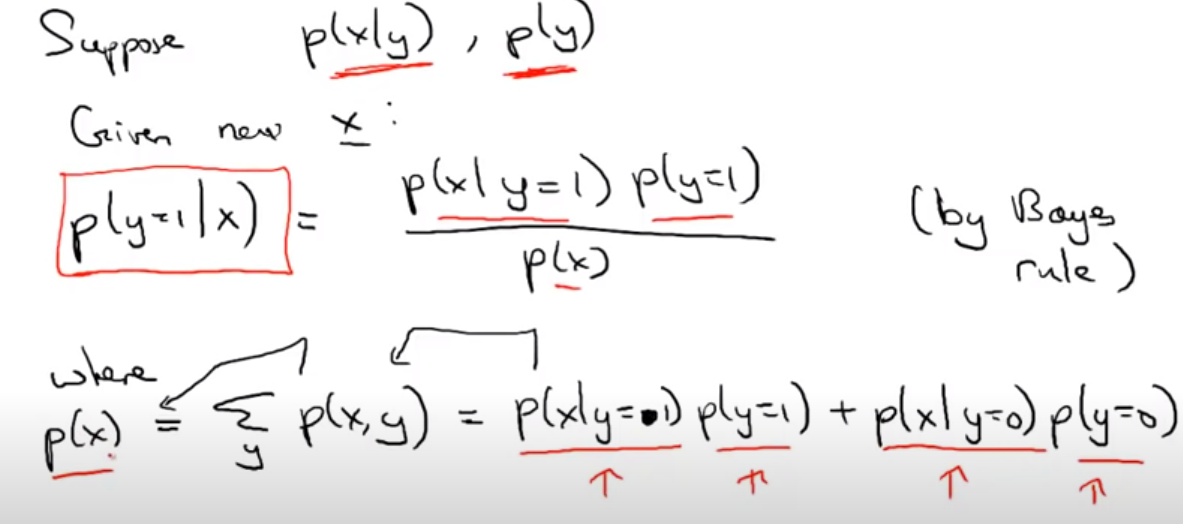 Suppose p(x|y) , p(y)
Given new x :
p(y=1|x) = p(x|y=1) p(y=1) / p(x) (by Bayes rule)
where
p(x) = Σ_y p(x,y) = p(x|y=1) p(y=1) + p(x|y=0) p(y=0)